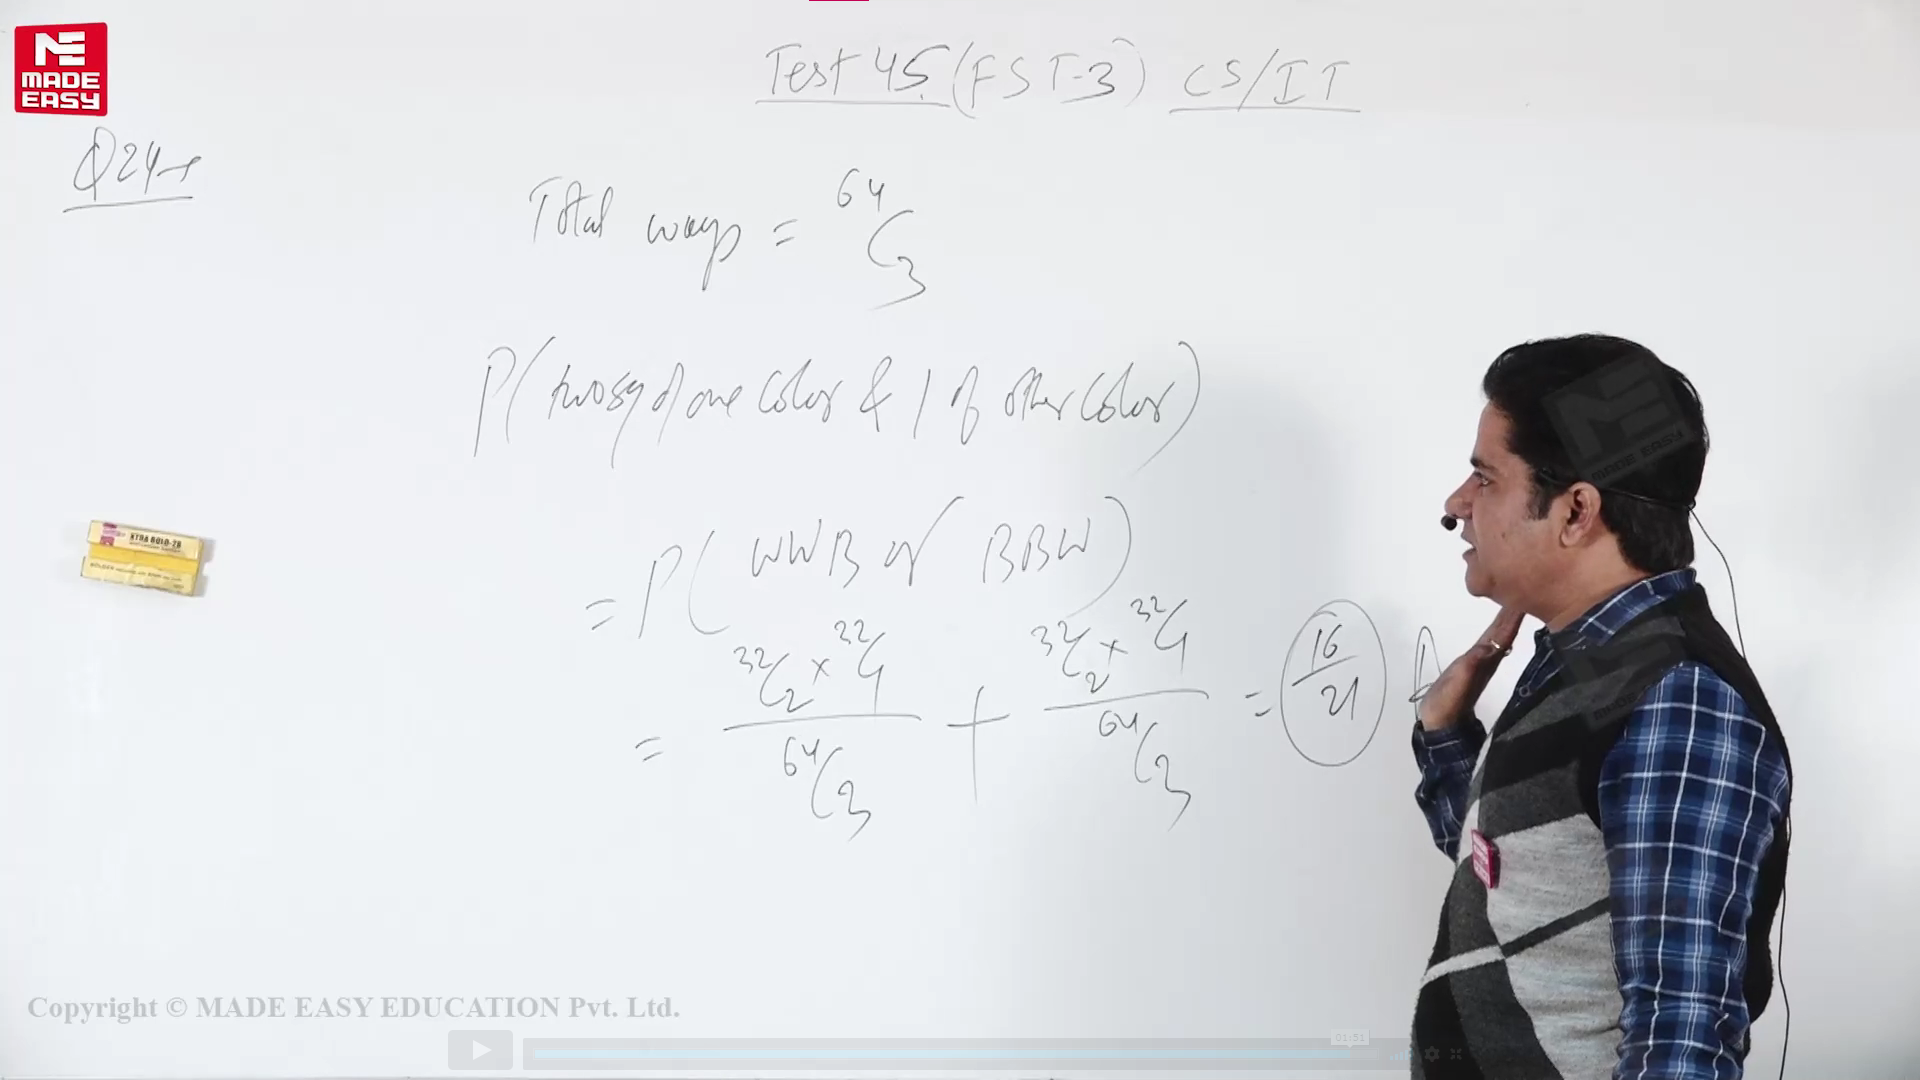 ME
MADE
EASY
Test 45 (FST-3) CS/IT
Q24→
Total ways = ⁶⁴C₃
P(two sq of one color & 1 of other color)
= P(WWB or BBW)
= ³²C₂ × ³²C₁ / ⁶⁴C₃ + ³²C₂ × ³²C₁ / ⁶⁴C₃ = 16/21
XTRA BOLD-2B
MADE EASY
Copyright © MADE EASY EDUCATION Pvt. Ltd.
01:51